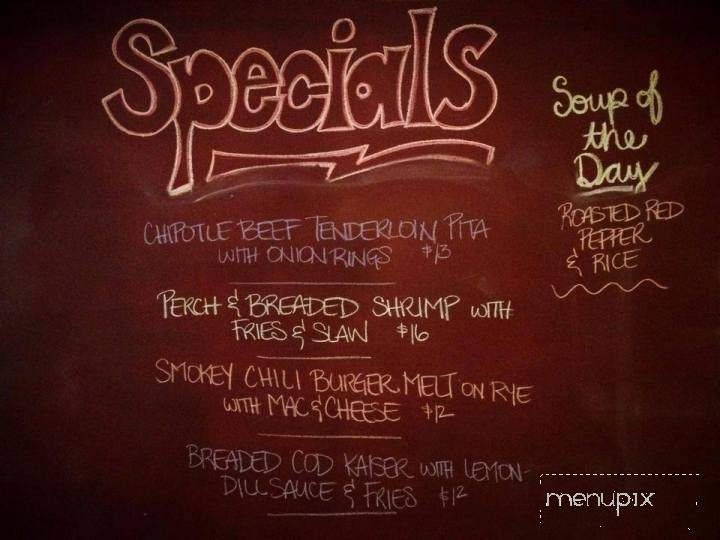 Specials
CHIPOTLE BEEF TENDERLOIN PITA
WITH ONION RINGS $13
PERCH & BREADED SHRIMP WITH
FRIES & SLAW $16
SMOKEY CHILI BURGER MELT ON RYE
WITH MAC & CHEESE $12
BREADED COD KAISER WITH LEMON-
DILL SAUCE & FRIES $12
Soup of
the
Day
ROASTED RED
PEPPER
& RICE
menupix